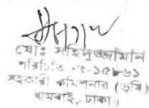 মোঃ সহিদুজ্জামান
পরিচিতি নং-১৫৮৬১
সহকারী কমিশনার (ভূমি)
ধামরাই, ঢাকা।